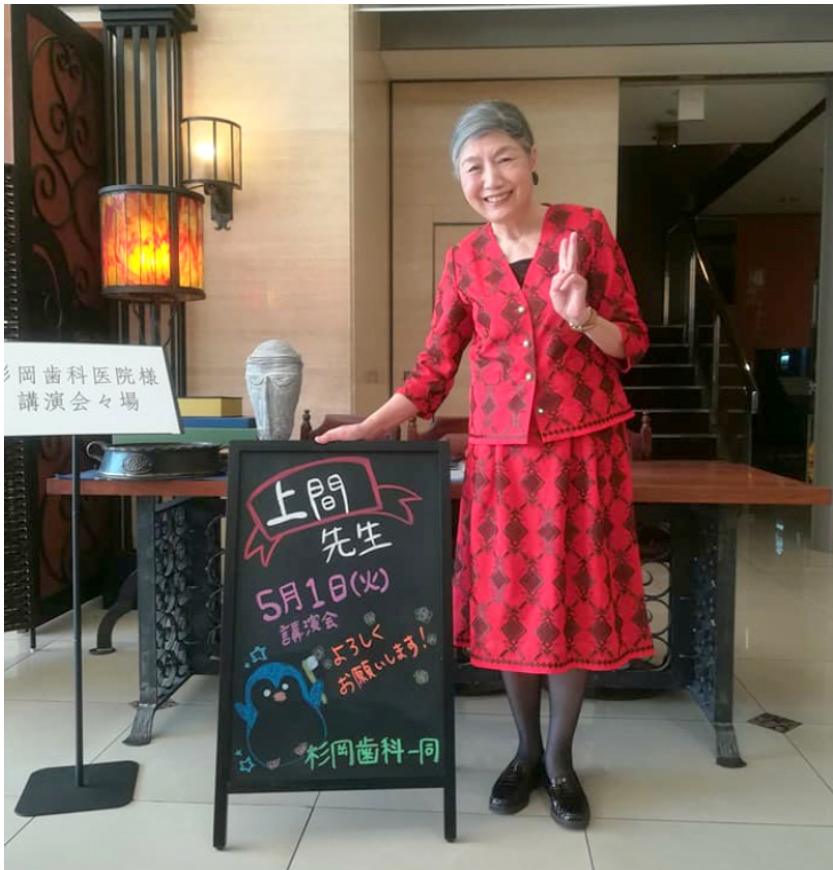 岡歯科医院様
講演会々場
上間
先生
5月1日(火)
講演会
よろしく
お願いします!
杉岡歯科一同